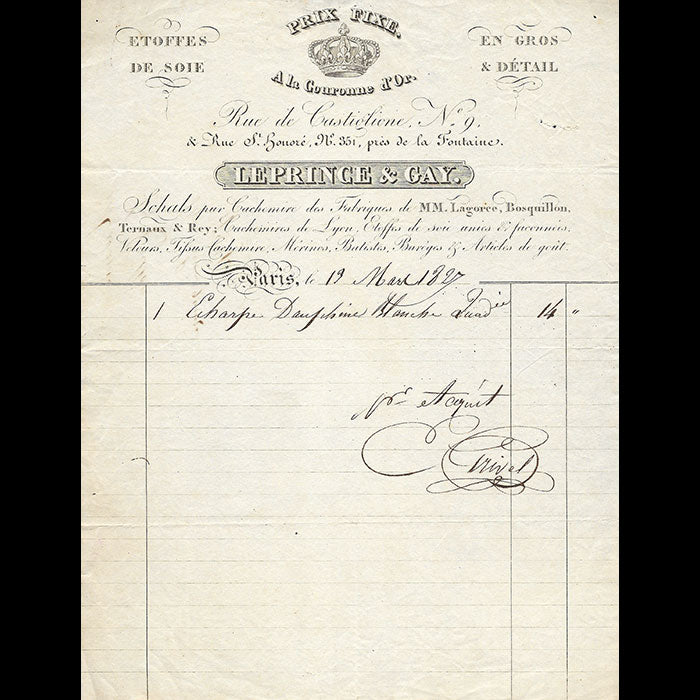 PRIX FIXE.
ETOFFES
DE SOIE
EN GROS
& DÉTAIL
A la Couronne d'Or.
Rue de Castiglione, Nº 9,
& Rue St Honoré, Nº 351, près de la Fontaine.
LEPRINCE & GAY.
Schals pur Cachemire des Fabriques de MM. Lagorce, Bosquillon,
Ternaux & Rey; Cachemires de Lyon, Etoffes de soie unies & façonnées,
Velours, Tissus Cachemire, Mérinos, Batistes, Barèges & Articles de goût.
Paris, le 19 Mars 1827
1 Echarpe Dauphine Blanche 14 "
pr acquit